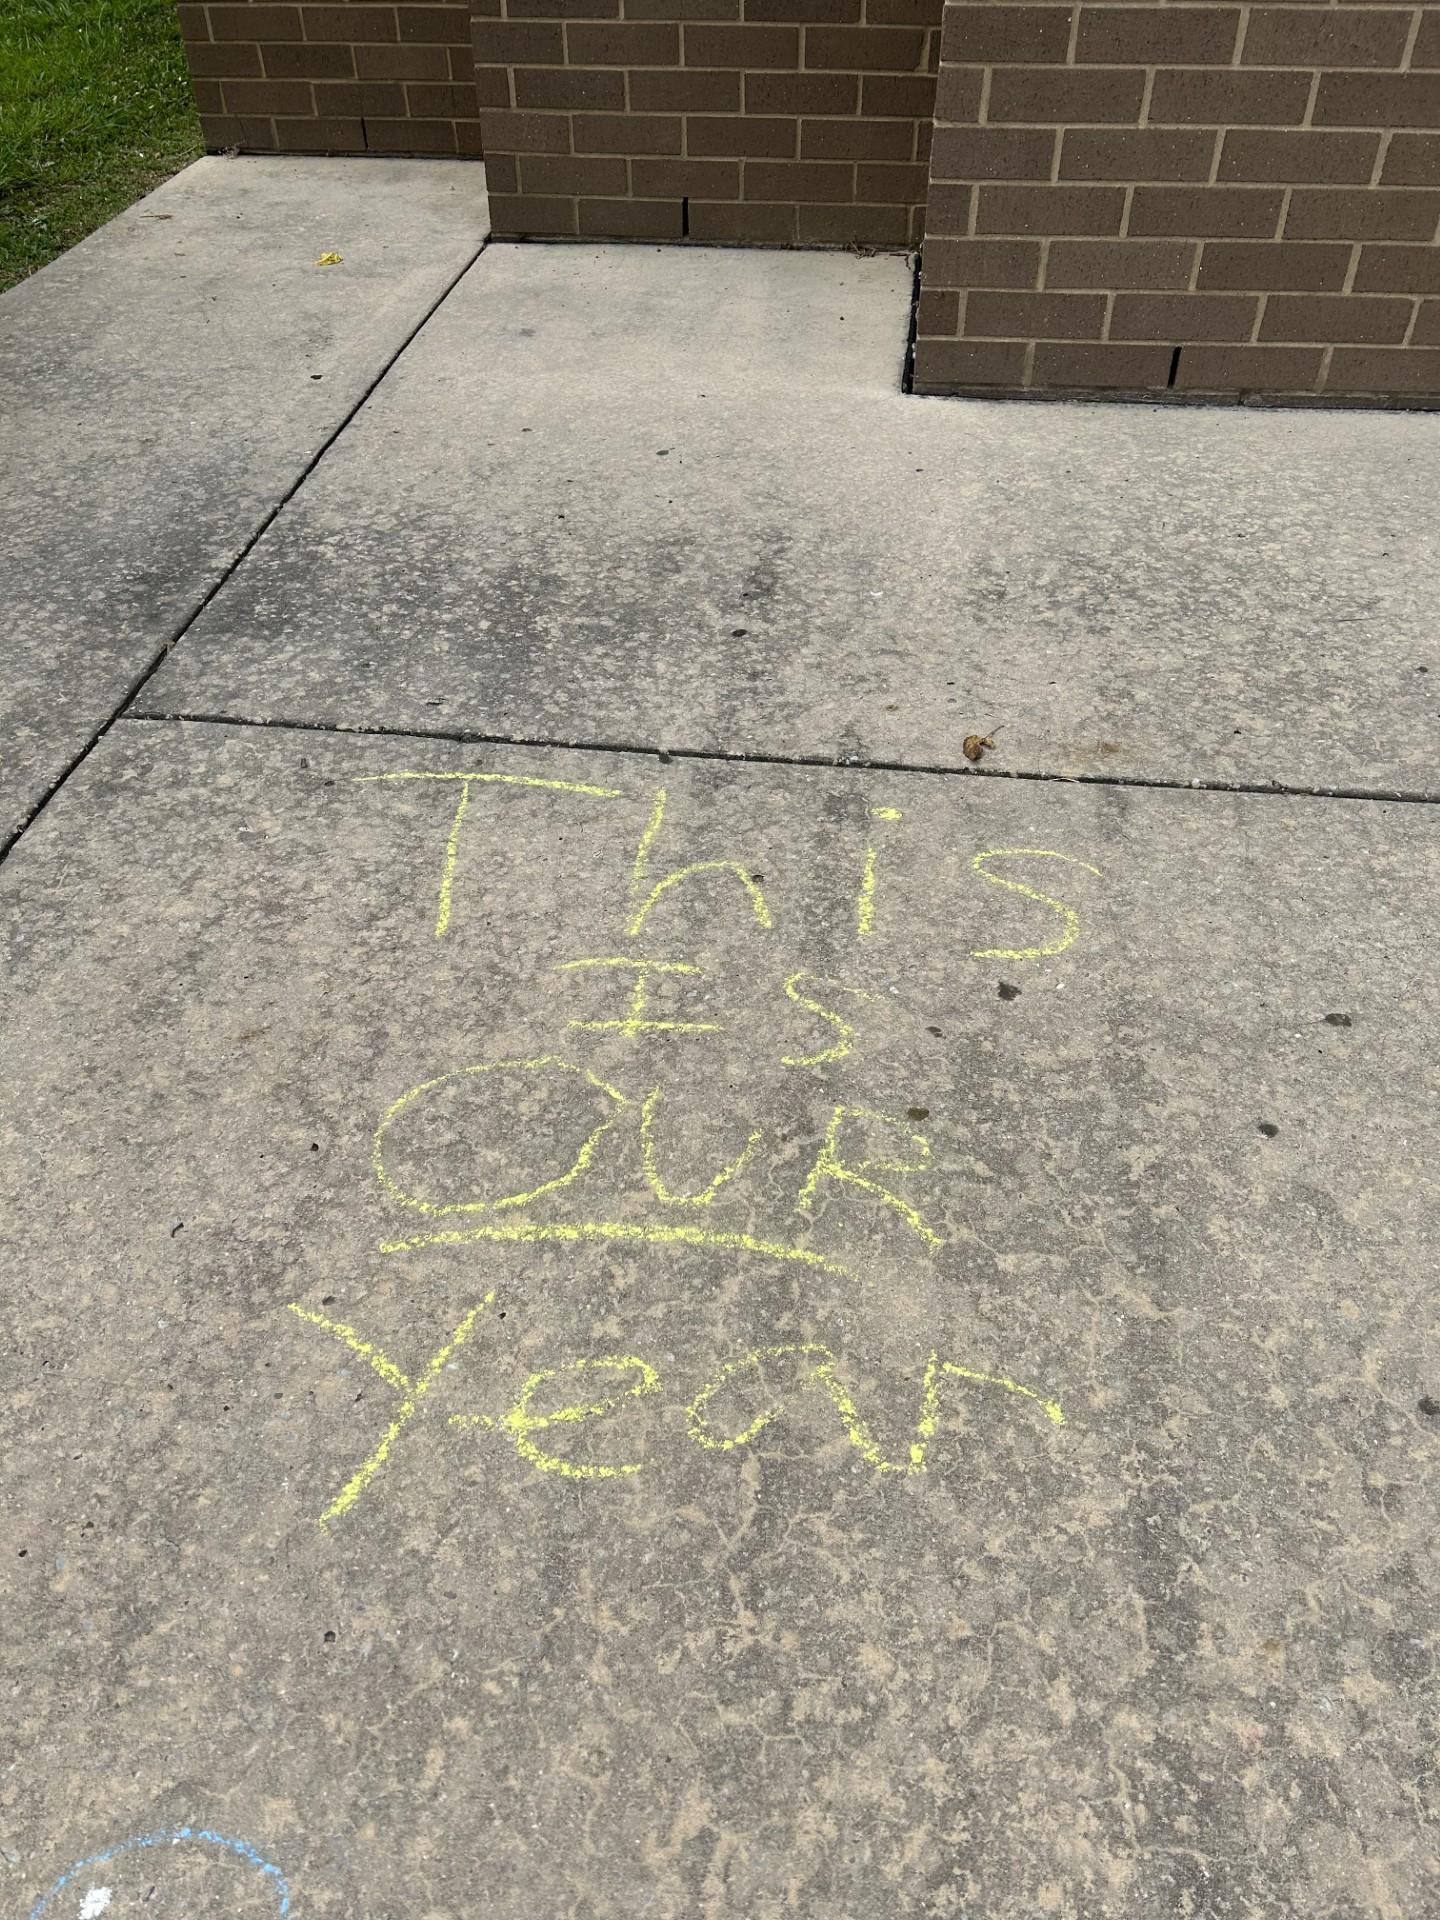 This
Is
OUR
Year